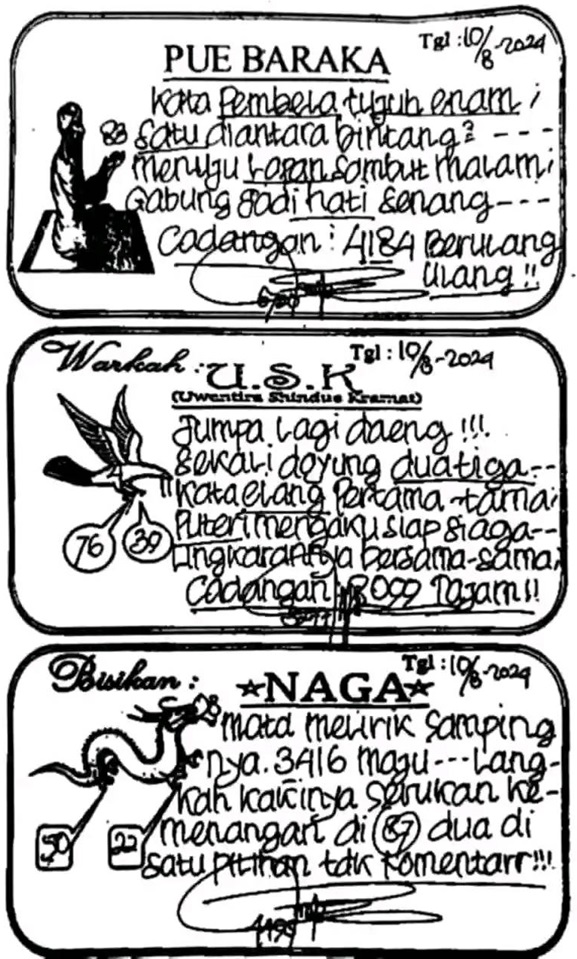 PUE BARAKA
Tgl : 10/8-2024
Kata Pembela tujuh enam ;
83 satu diantara bintang ? - - -
menuju Losan sambut malam ;
Gabung jadi hati senang - - -
Cadangan : 4184 Berulang
ulang !!
Warkah : U.S.K
Tgl : 10/8-2024
(Uwentira Shindue Kramat)
Jumpa Lagi daeng !!!
sekali dayung duatiga - -
Kata elang Pertama-tama ;
76 39
Puteri mengaku siap siaga - -
Lingkarannya bersama-sama ;
Cadangan 8099 Tajam !!
Bisikan : NAGA
Tgl : 10/8-2024
mata melirik samping
nya. 3416 maju - - - Lang-
kah kakinya serukan ke-
50 22
menangan di 87 dua di
satu pilihan tdk Komentarr !!!